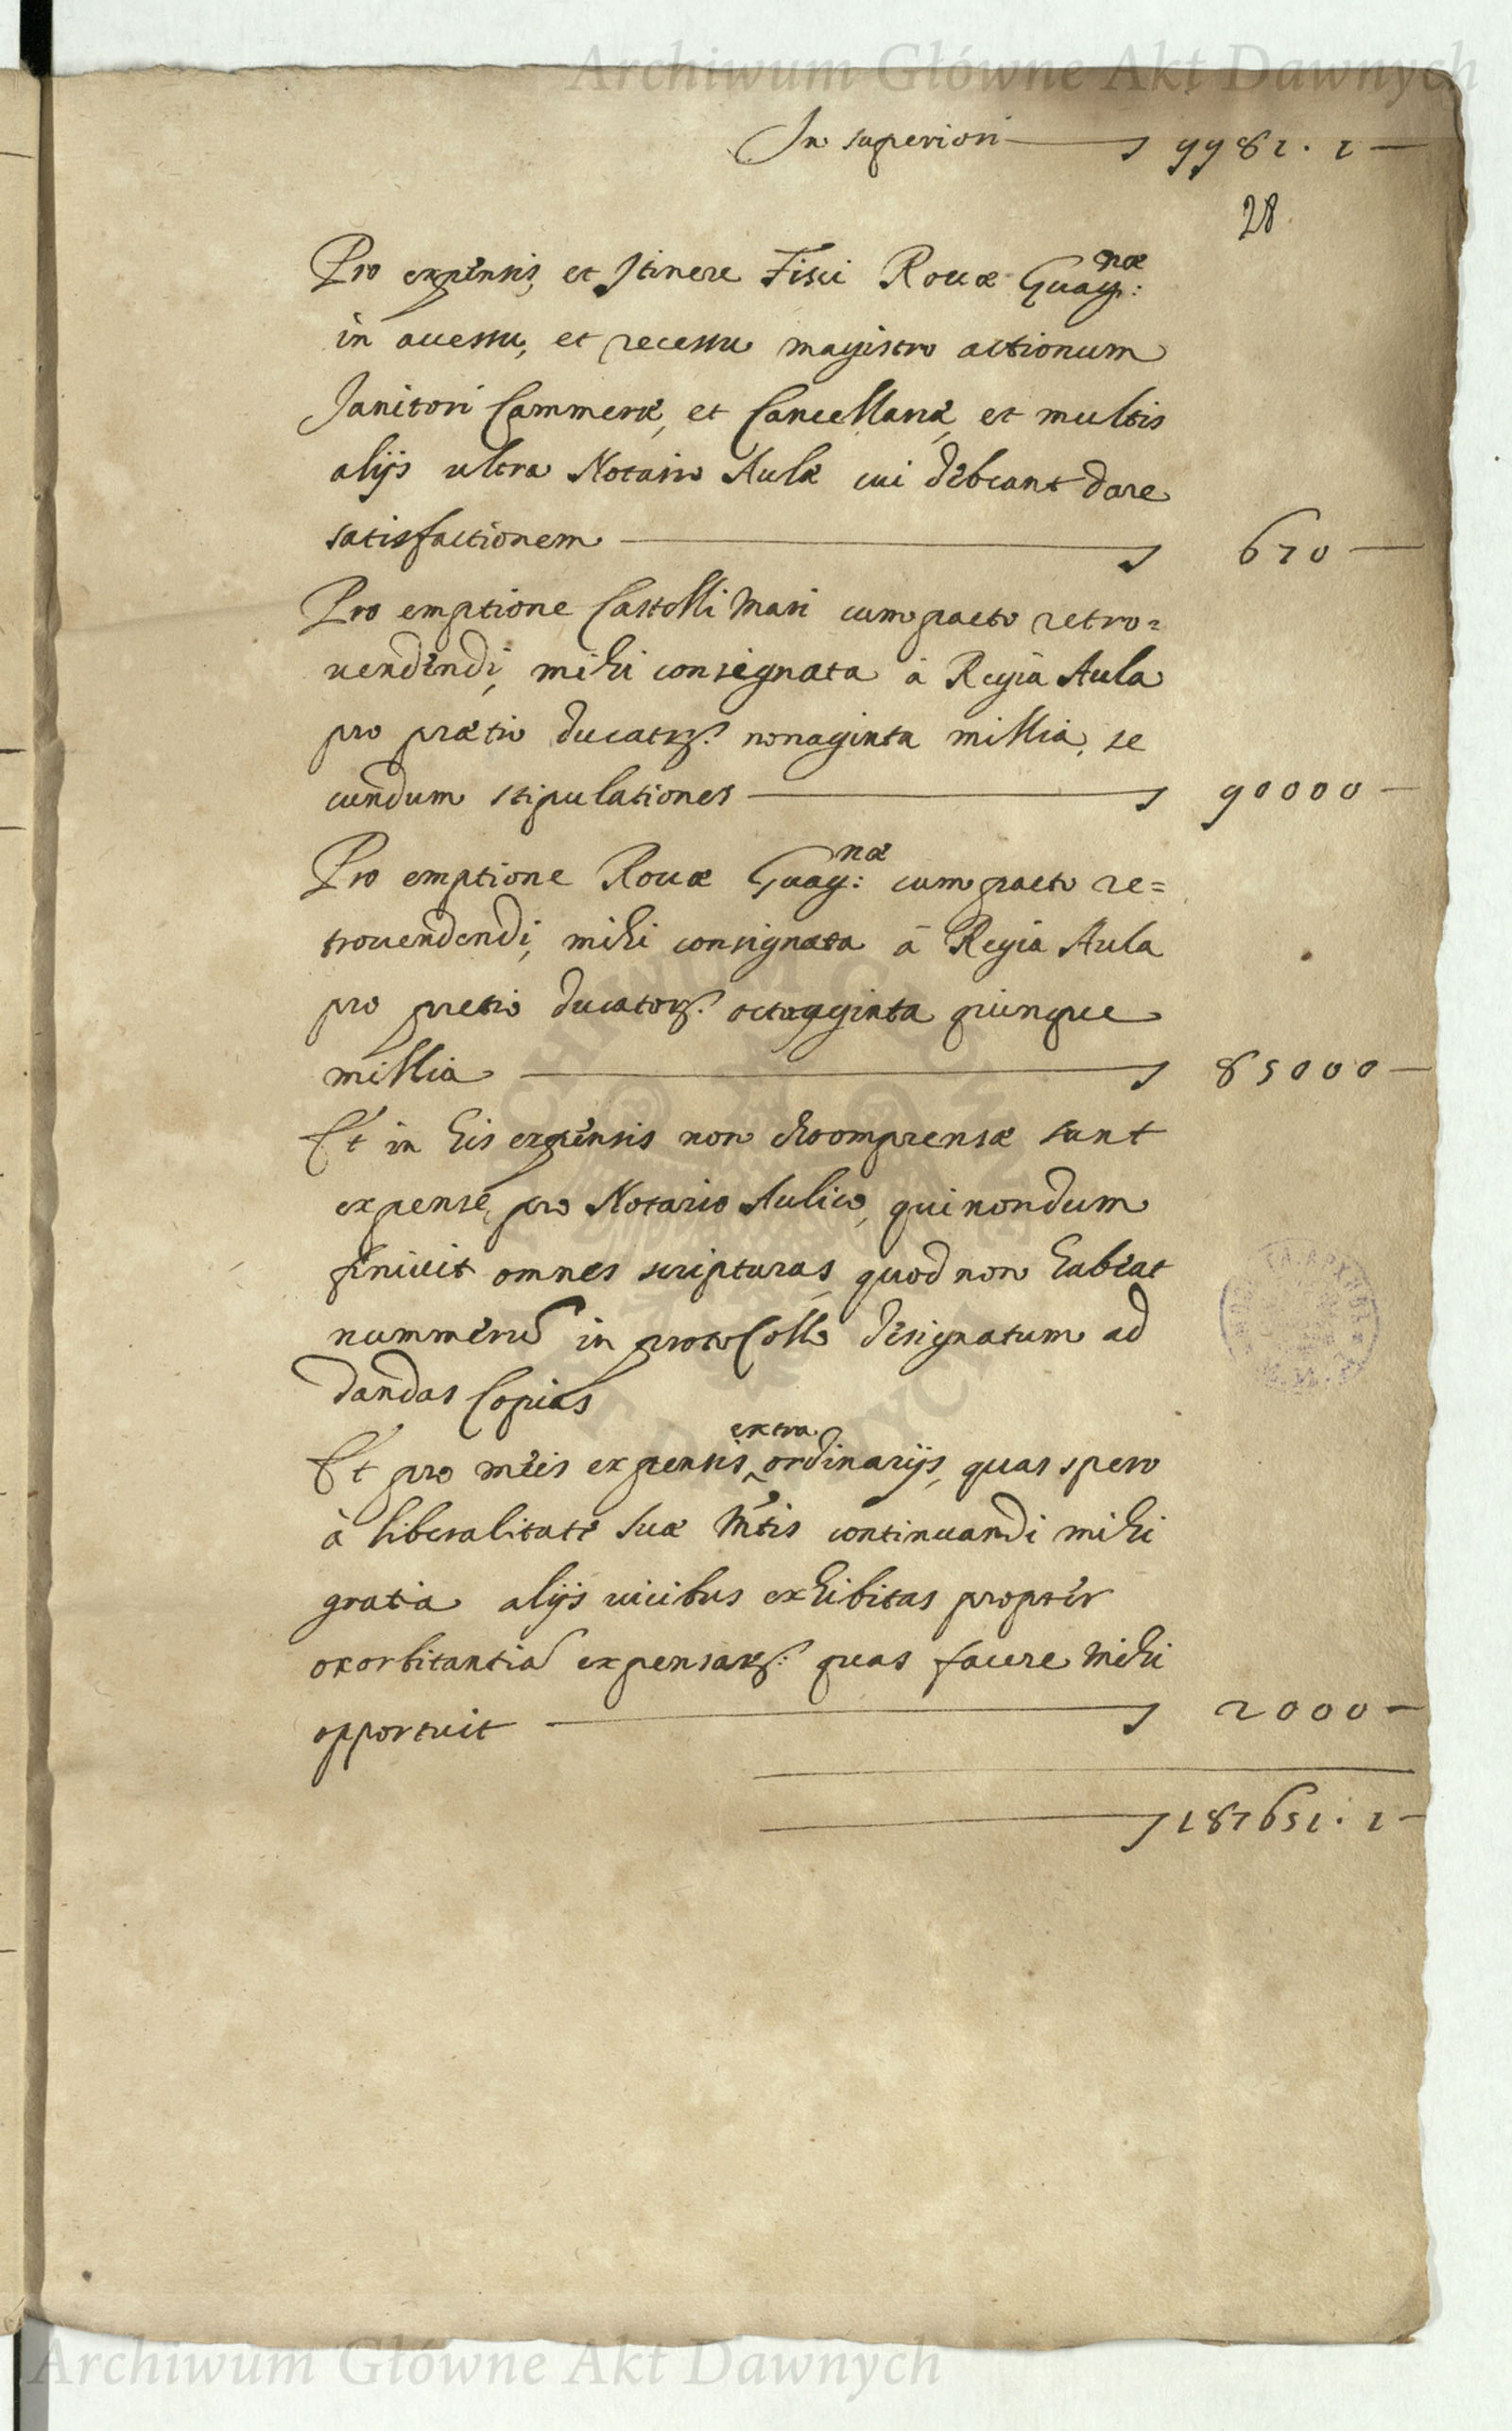 Archiwum Główne Akt Dawnych
In superiori 9981 . 1 —
28
Pro expensis, et Itinere Fisci Rouæ Guag:næ
in accessu, et recessu magistro actionum
Janitori Cammeræ, et Cancellariæ, et multis
alijs ultra Notario Aulæ cui debeant dare
satisfactionem 670 —
Pro emptione Castelli Mari cum pacto retro=
uendendi, mihi consignata à Regia Aula
pro prætio ducator: nonaginta millia, se
cundum stipulationes 90000 —
Pro emptione Rouæ Guag:næ cum pacto re=
trouendendi, mihi consignata à Regia Aula
pro pretio ducator: octuaginta quinque
millia 85000 —
Et in his expensis non comprensæ sunt
expensæ, pro Notario Aulico, qui nondum
finiuit omnes scripturas, quod non habeat
nummerũ in protoCollo designatum ad
dandas Copias
Et pro meis expensis extra ordinarijs, quas spero
à liberalitate suæ Mtis continuandi mihi
gratia alijs uicibus exhibitas propter
exorbitantiã expensar: quas facere mihi
opportuit 2000 —
187651 . 1 —
Archiwum Główne Akt Dawnych